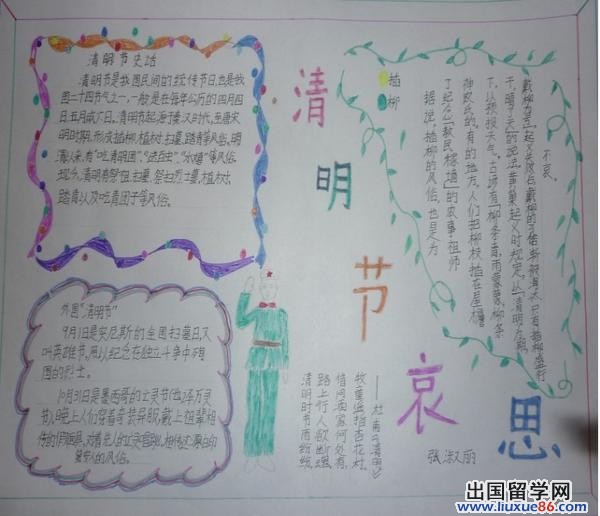 清明节史话
清明节是我国民间的传统节日,也是我
国二十四节气之一,一般是在每年公历的四月四
日、五月或六日。清明节起源于秦汉时代,至唐宋
明时期,形成插柳、植树、扫墓、踏青等风俗。明
清以来,有"吃清明团"、
现今,清明有祭祖扫墓、祭扫烈士墓、植树、
踏青以及吃青团子等风俗。
外国"清明节"
9月1日是
的全国扫墓日又
叫英雄节,用以纪念在独立斗争中
国的烈士。
10月31日是墨西哥的亡灵节(也
节),晚上人们穿着奇装异服,戴上祖辈相
传的假面具
的风俗。
清
明
节
哀
思
插柳
据说插柳的风俗,也是为
了纪念"教民稼墙"的农事祖师
神农氏的。有的地方,人们把柳枝插在屋檐
下,以预报天气。古谚有"柳条青,雨蒙蒙;柳条
干,晴了天"的说法。黄巢起义时规定,以"清明为期,
戴柳为号"。起义失败后,戴柳的习俗渐被淘汰,只有插柳盛行
不衰。
清明时节雨纷纷,
路上行人欲断魂。
借问酒家何处有,
牧童遥指杏花村。
——杜甫《清明》
张淑丽
出国留学网
www.liuxue86.com